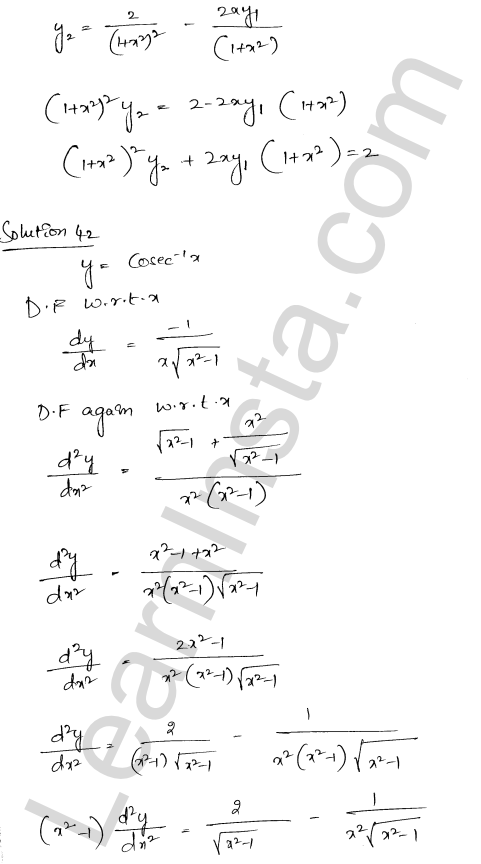 y₂ = 2/(1+x²)² - 2xy₁/(1+x²)
(1+x²)² y₂ = 2-2xy₁ (1+x²)
(1+x²)² y₂ + 2xy₁ (1+x²) = 2
Solution 42
y = Cosec⁻¹x
D.F w.r.t.x
dy/dx = -1/(x√(x²-1))
D.F again w.r.t.x
d²y/dx² = (√(x²-1) + x²/√(x²-1))/(x²(x²-1))
d²y/dx² = (x²-1+x²)/(x²(x²-1)√(x²-1))
d²y/dx² = (2x²-1)/(x²(x²-1)√(x²-1))
d²y/dx² = 2/((x²-1)√(x²-1)) - 1/(x²(x²-1)√(x²-1))
(x²-1) d²y/dx² = 2/√(x²-1) - 1/(x²√(x²-1))
LearnInsta.com